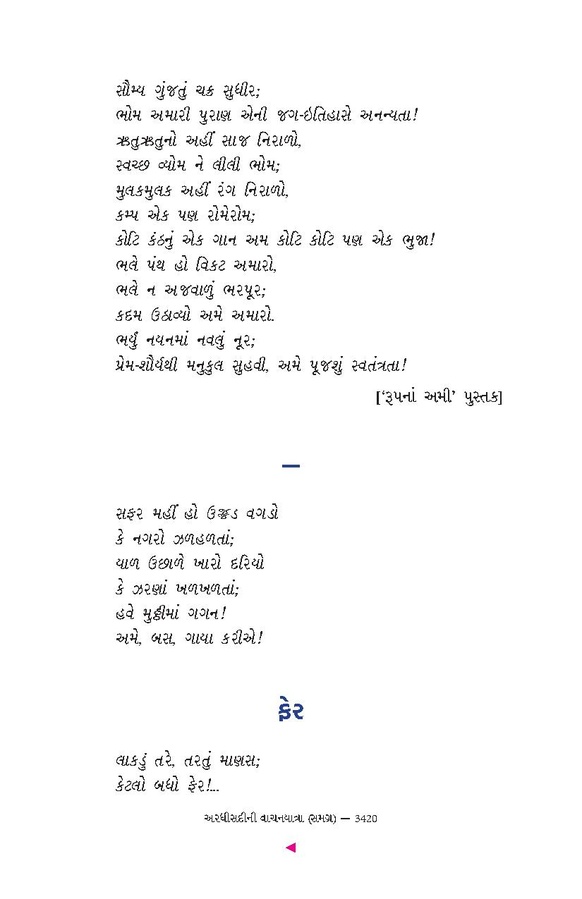 સૌમ્ય ગુંજતું ચક્ર સુધીર;
ભોમ અમારી પુરાણ એની જગ-ઇતિહાસે અનન્યતા!
ઋતુઋતુનો અહીં સાજ નિરાળો,
સ્વચ્છ વ્યોમ ને લીલી ભોમ;
મુલકમુલક અહીં રંગ નિરાળો,
કમ્પ એક પણ રોમેરોમ;
કોટિ કંઠનું એક ગાન અમ કોટિ કોટિ પણ એક ભુજા!
ભલે પંથ હો વિકટ અમારો,
ભલે ન અજવાળું ભરપૂર;
કદમ ઉઠાવ્યો અમે અમારો.
ભર્યું નયનમાં નવલું નૂર;
પ્રેમ-શૌર્યથી મનુકુલ સુહવી, અમે પૂજશું સ્વતંત્રતા!
[‘રૂપનાં અમી’ પુસ્તક]
—
સફર મહીં હો ઉજ્જડ વગડો
કે નગરો ઝળહળતાં;
યાળ ઉછાળે ખારો દરિયો
કે ઝરણાં ખળખળતાં;
હવે મુઠ્ઠીમાં ગગન!
અમે, બસ, ગાયા કરીએ!
ફેર
લાકડું તરે, તરતું માણસ;
કેટલો બધો ફેર!...
અરધીસદીની વાચનયાત્રા (સમગ્ર) — 3420